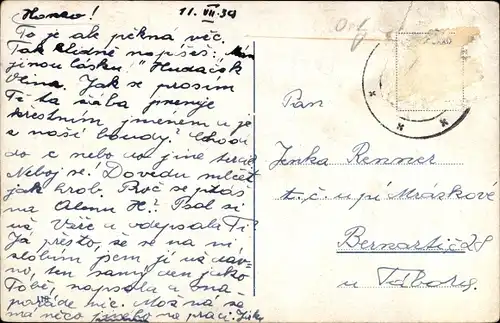 Honzo! 11. VII. 39
To je ale pěkná věc.
Tak klidně napíšeš: "Mám
jinou lásku!" Hudaček
Věna. Jak se prosím
Ti ta žába jmenuje
křestním jménem a je
z naší boudy? Chodí
do c nebo do jiné tercie
Neboj se! Dovedu mlčet
jak hrob. Proč se ptáš
na Alenu H.? Psal si
už, Věře a odepsala Ti?
Já přesto, že se na ni
slobím jsem jí už dáv-
no, ten samý den jako
Tobě, napsala a ona
pořáde nic. Možná že
má něco na práci. Jak
Pan
Jenka Renner
t. č. u pí Mráskové
Bernartice 28
u Tábora